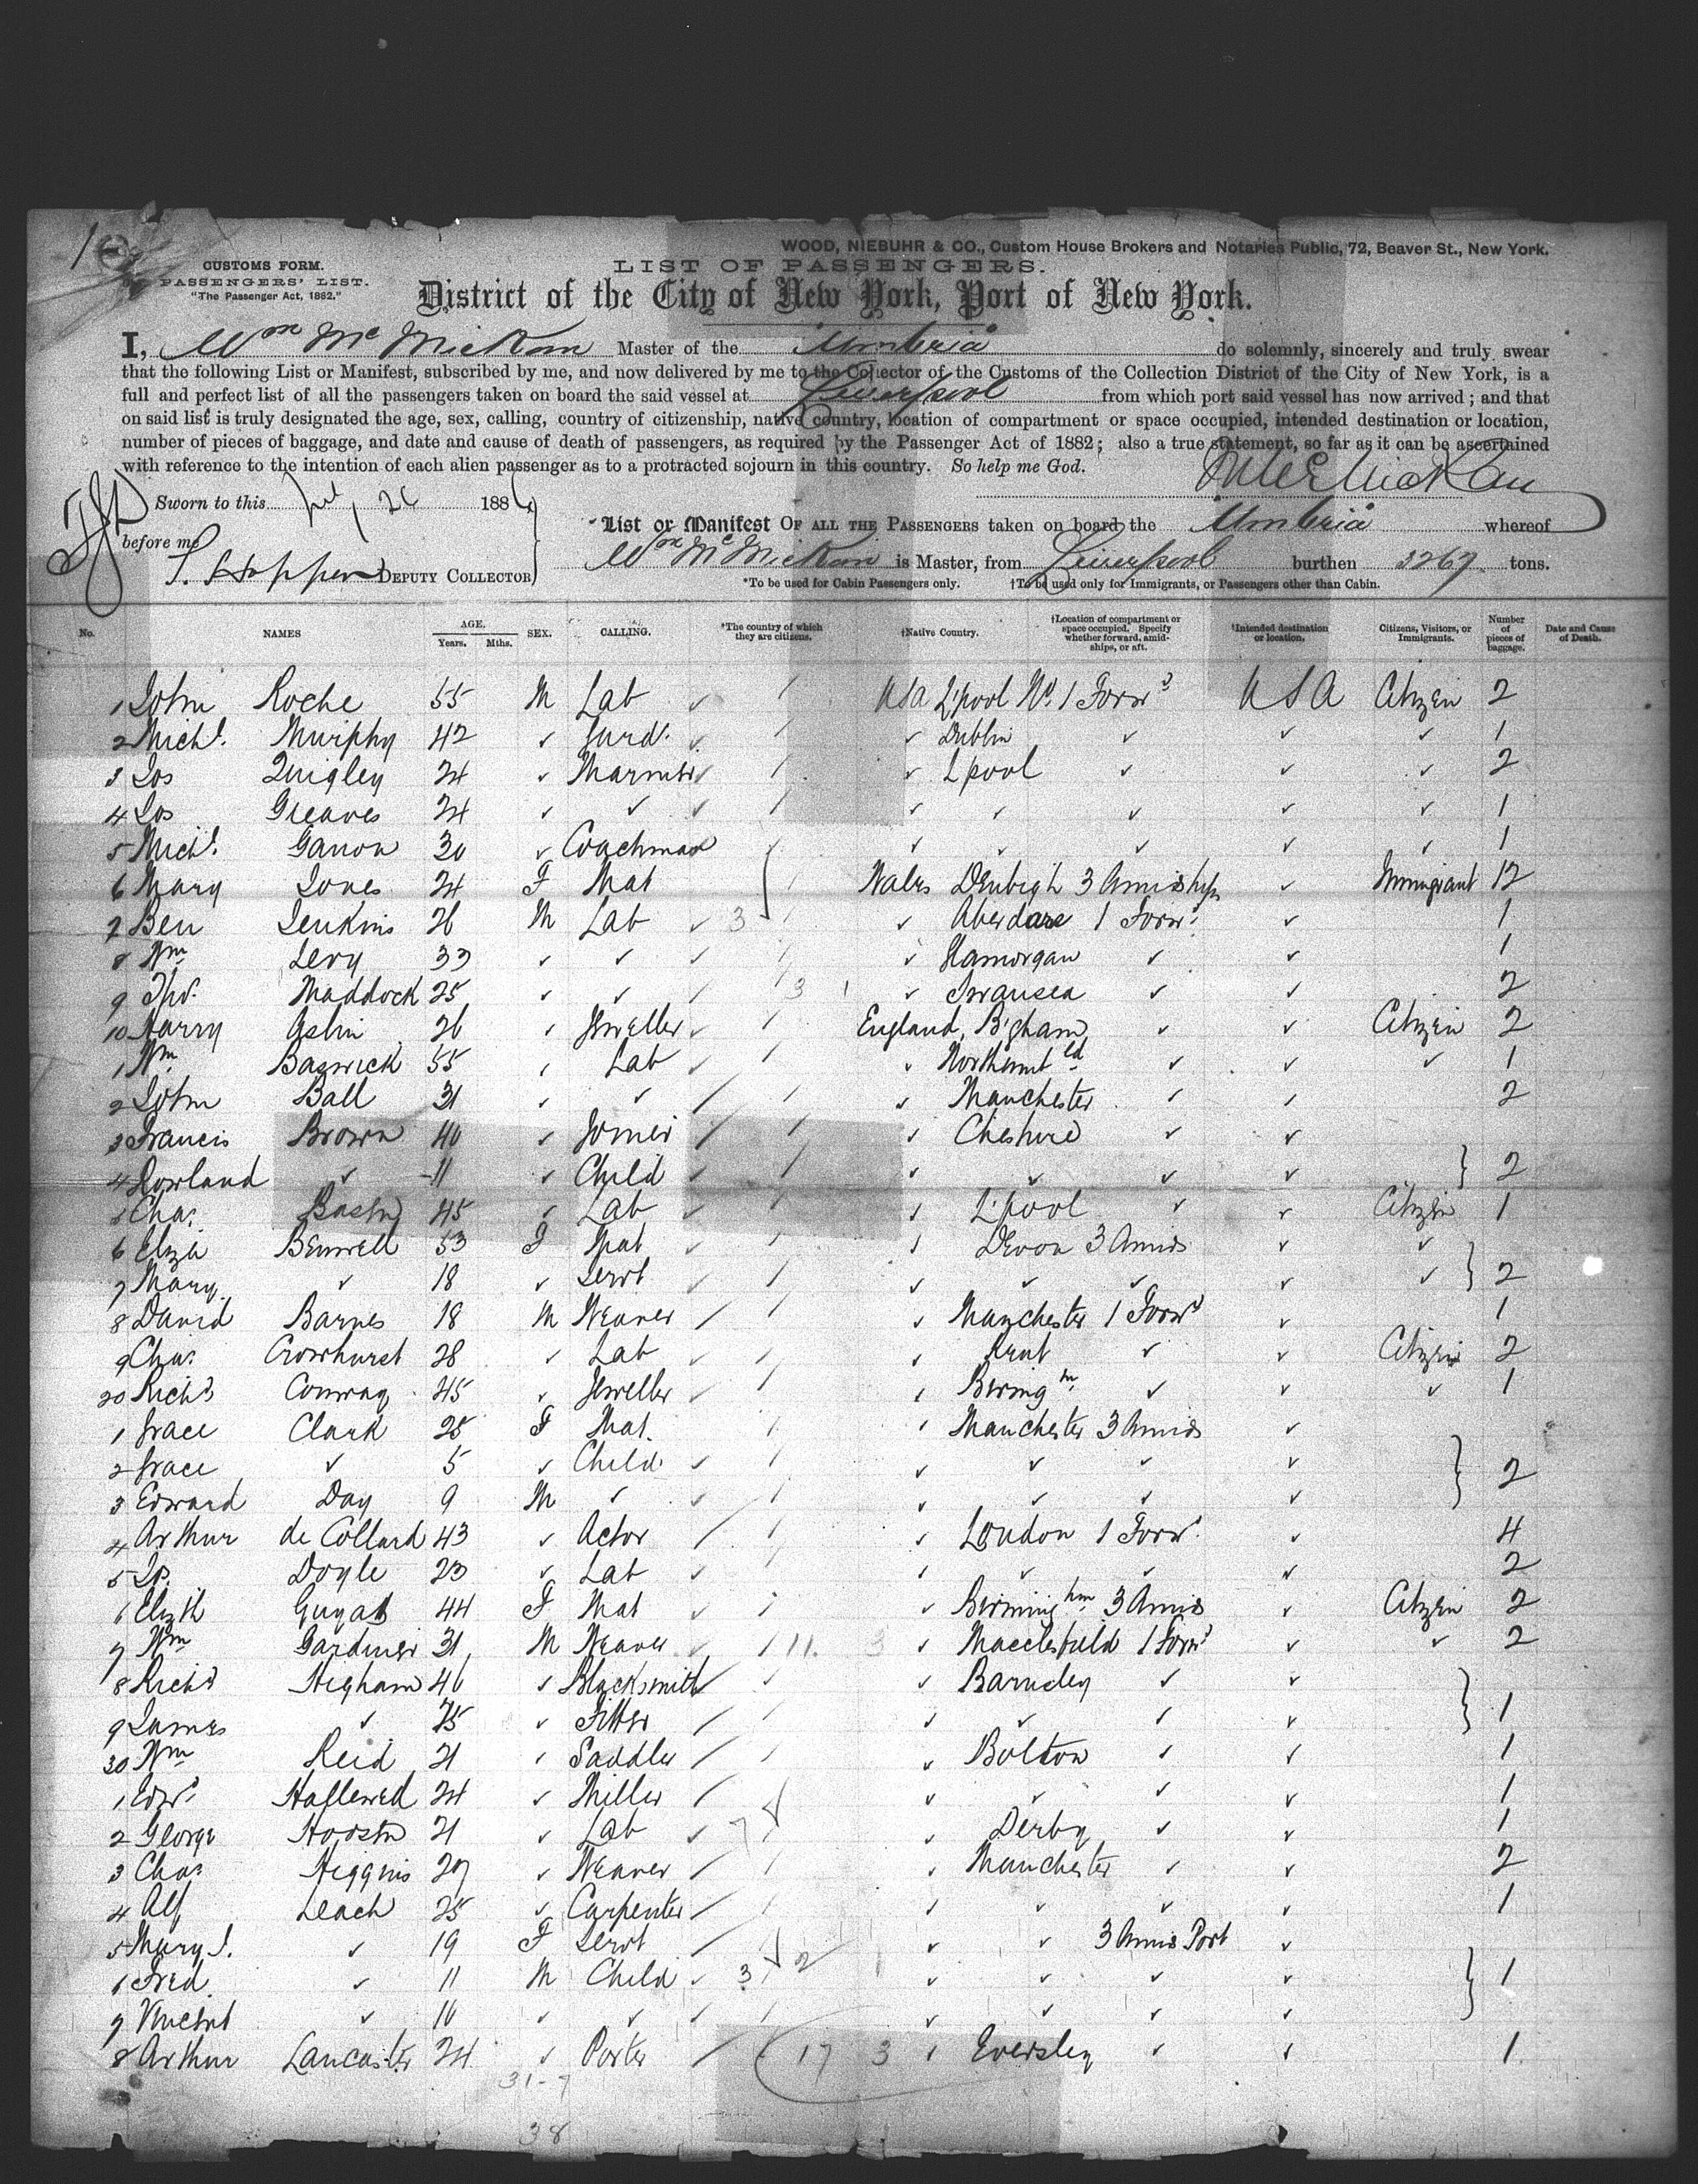 1
WOOD, NIEBUHR & CO., Custom House Brokers and Notaries Public, 72, Beaver St., New York.
CUSTOMS FORM.
PASSENGERS' LIST.
"The Passenger Act, 1882."
LIST OF PASSENGERS.
District of the City of New York, Port of New York.
I, Wm McMickan Master of the Umbria do solemnly, sincerely and truly swear
that the following List or Manifest, subscribed by me, and now delivered by me to the Collector of the Customs of the Collection District of the City of New York, is a
full and perfect list of all the passengers taken on board the said vessel at Liverpool from which port said vessel has now arrived; and that
on said list is truly designated the age, sex, calling, country of citizenship, native country, location of compartment or space occupied, intended destination or location,
number of pieces of baggage, and date and cause of death of passengers, as required by the Passenger Act of 1882; also a true statement, so far as it can be ascertained
with reference to the intention of each alien passenger as to a protracted sojourn in this country. So help me God.
Sworn to this 26 188
before me
DEPUTY COLLECTOR
List or Manifest OF ALL THE PASSENGERS taken on board the Umbria whereof
Wm McMickan is Master, from Liverpool burthen 3267 tons.
*To be used for Cabin Passengers only. †To be used only for Immigrants, or Passengers other than Cabin.
No. NAMES AGE. Years. Mths. SEX. CALLING. *The country of which they are citizens. †Native Country. †Location of compartment or space occupied. Specify whether forward, amidships, or aft. †Intended destination or location. Citizens, Visitors, or Immigrants. Number of pieces of baggage. Date and Cause of Death.
1 John Roche 55 M Lab ✓ USA L'pool No. 1 Forwd USA Citizen 2
2 Michl. Murphy 42 ✓ ✓ ✓ Dublin ✓ ✓ ✓ 1
3 Jos Quigley 24 ✓ Mariner ✓ ✓ L'pool ✓ ✓ ✓ 2
4 Jos Greaves 24 ✓ ✓ ✓ ✓ ✓ ✓ ✓ ✓ 1
5 Michl. Ganon 30 ✓ Coachman ✓ ✓ ✓ ✓ ✓ 1
6 Mary Jones 24 F Mat Wales Denbigh 3 Amidships ✓ Immigrant 12
7 Ben Jenkins 26 M Lab ✓ 3 ✓ Aberdare 1 Forwd ✓ 1
8 Wm Levy 33 ✓ ✓ ✓ ✓ Glamorgan ✓ ✓ 1
9 Maddock 25 ✓ ✓ 3 ✓ Swansea ✓ ✓ 2
10 Harry Aslin 26 ✓ Jeweller ✓ England, B'gham ✓ ✓ Citizen 2
1 Wm Baswick 55 ✓ Lab ✓ ✓ ✓ ✓ ✓ 1
2 John Ball 31 ✓ ✓ ✓ Manchester ✓ ✓ 2
3 Francis Brown 40 ✓ Joiner ✓ Cheshire ✓ ✓
4 Rowland ✓ 11 ✓ Child ✓ ✓ ✓ ✓ ✓ } 2
5 Chas. 45 ✓ Lab ✓ L'pool ✓ ✓ Citizen 1
6 Eliza Benwell 53 F Mat ✓ Devon 3 Amids ✓ ✓
7 Mary ✓ 18 ✓ Servt ✓ ✓ ✓ ✓ ✓ } 2
8 David Barnes 18 M Weaver ✓ Manchester 1 Forwd ✓ 1
9 Chas. Crowhurst 28 ✓ Lab ✓ Kent ✓ ✓ Citizen 2
20 Richd Conway 45 ✓ Jeweller ✓ Birmgm ✓ ✓ ✓ 1
1 Grace Clark 25 F Mat. Manchester 3 Amids ✓
2 Grace ✓ 5 ✓ Child ✓ ✓ ✓ ✓ ✓ } 2
3 Edward Day 9 M ✓ ✓ ✓ ✓ ✓ ✓
4 Arthur de Collard 43 ✓ Actor ✓ London 1 Forwd. ✓ 4
5 Doyle 23 ✓ Lab ✓ ✓ ✓ ✓ ✓ 2
6 Elizth 44 F Mat ✓ ✓ Birminghm 3 Amids ✓ Citizen 2
7 Wm Gardiner 31 M Weaver ✓ 11. 3 ✓ Macclesfield 1 Forwd ✓ ✓ 2
8 Richd Higham 46 ✓ Blacksmith ✓ Barnsley ✓ ✓
9 James ✓ ✓ Fitter ✓ ✓ ✓ ✓ } 1
30 Wm Reid 21 ✓ Saddler ✓ Bolton ✓ ✓ 1
1 Edwd 24 ✓ Miller ✓ ✓ ✓ ✓ 1
2 George 21 ✓ Lab ✓ ✓ Derby ✓ ✓ 1
3 Chas. Higgins 29 ✓ Weaver ✓ Manchester ✓ ✓ 2
4 Alf Leach 25 ✓ Carpenter ✓ ✓ ✓ ✓ 1
5 Mary J. ✓ 19 F Servt ✓ ✓ 3 Amids Port ✓
6 Fred ✓ 11 M Child ✓ 3 2 ✓ ✓ ✓ ✓ } 1
7 Vincent ✓ 10 ✓ ✓ ✓ ✓ ✓ ✓ ✓
8 Arthur Lancaster 24 ✓ Porter 17 3 Eversley ✓ ✓ 1
31-7
38